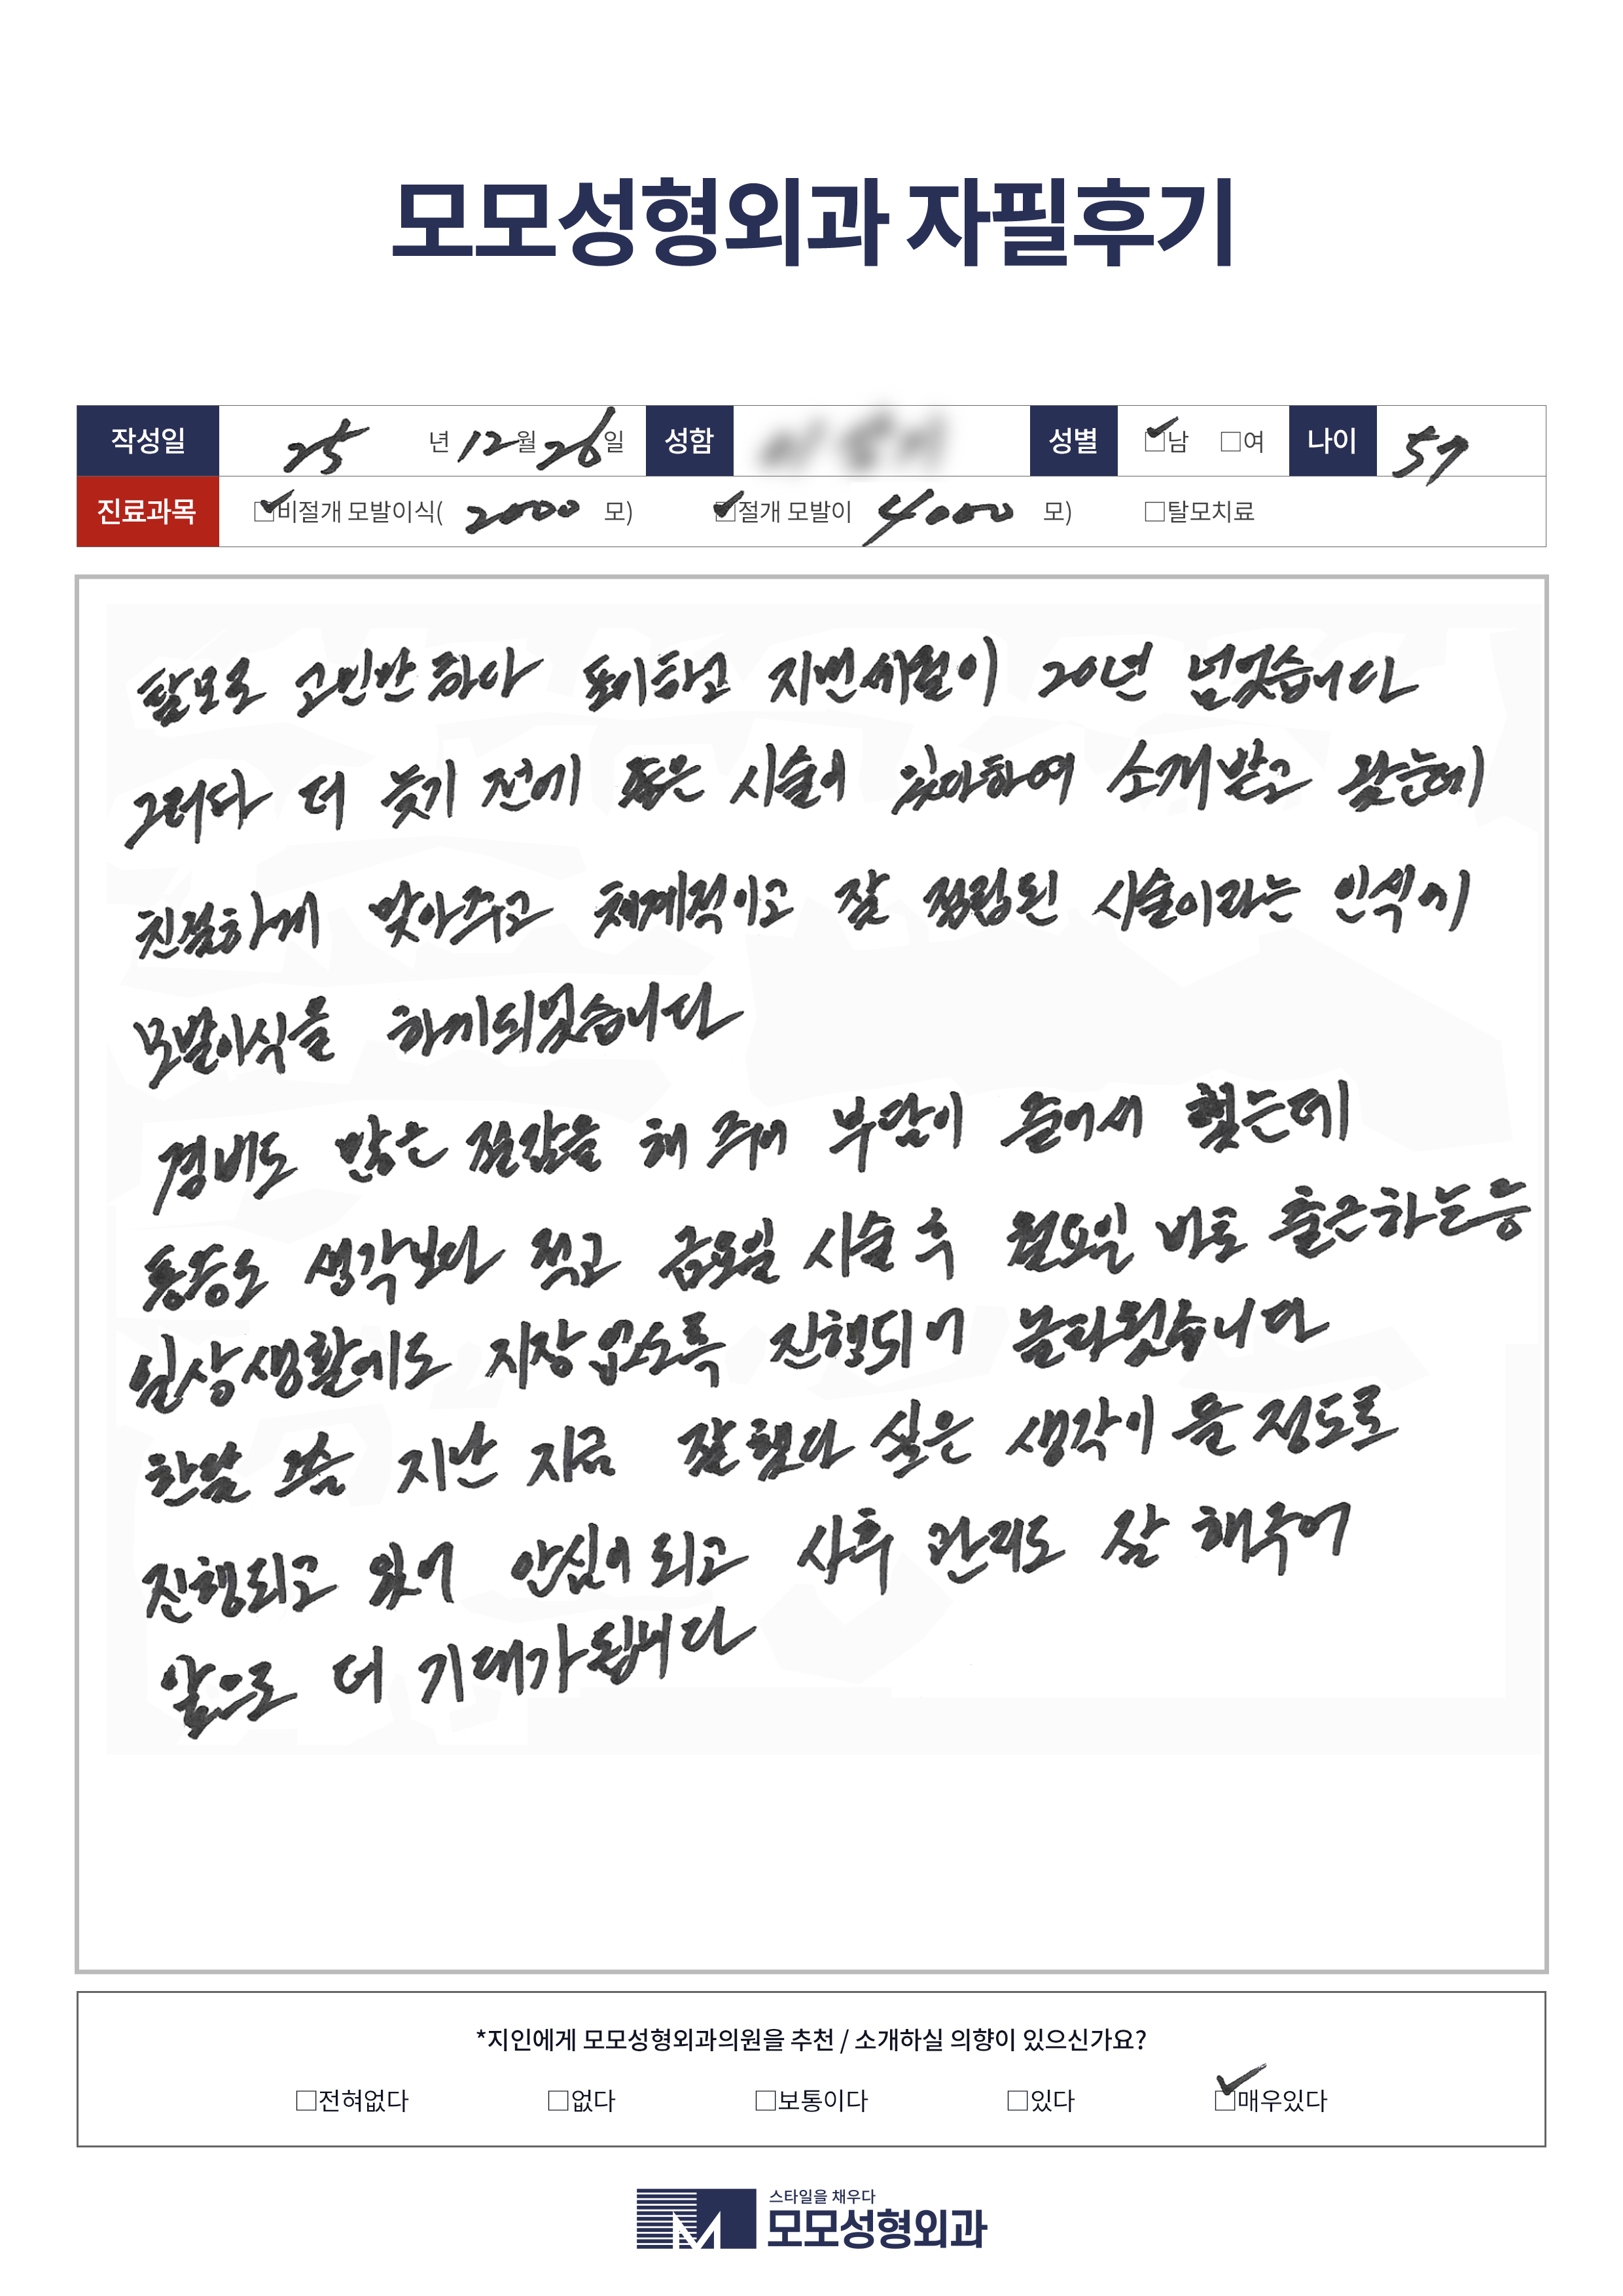 모모성형외과 자필후기
작성일 25 년 12 월 26 일 성함 성별 ☑남 □여 나이 57
진료과목 ☑비절개 모발이식( 2000 모) ☑절개 모발이 4000 모) □탈모치료
탈모로 고민만 하다 포기하고 지번 세월이 20년 넘었습니다
그러다 더 늦기 전에 좋은 시술이 있다하여 소개 받고 왔는데
친절하게 맞아주고 체계적이고 잘 정립된 시술이라는 인식에
모발이식을 하게되었습니다
경비도 많은 절감을 해 주어 부담이 줄어서 했는데
통증도 생각보다 적고 금요일 시술 후 월요일 바로 출근하는등
일상생활에도 지장 없도록 진행되어 놀라웠습니다
한달 쯤 지난 지금 잘했다 싶은 생각이 들 정도로
진행되고 있어 안심이 되고 사후 관리도 잘 해주어
앞으로 더 기대가 됩니다
*지인에게 모모성형외과의원을 추천 / 소개하실 의향이 있으신가요?
□전혀없다 □없다 □보통이다 □있다 ☑매우있다
스타일을 채우다
모모성형외과